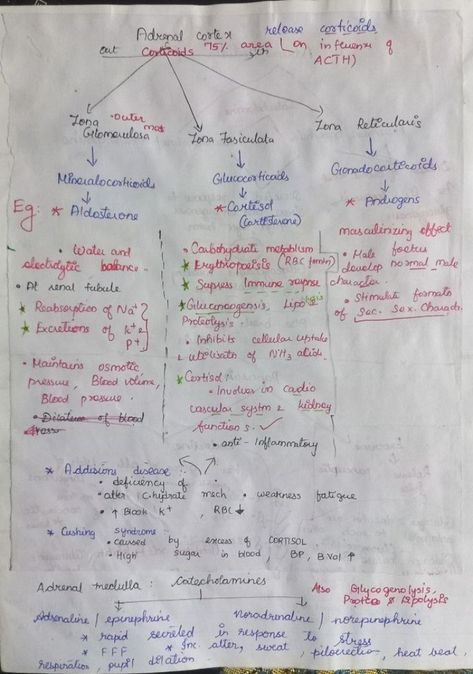 Adrenal cortex release corticoids
out Corticoids 75% area (on influenx of
in ACTH)
Zona Outer most
Glomerulosa
Zona Fasiculata
Zona Reticularis
Mineralocorticoids
Glucocorticoids
Gonadocorticoids
Eg: * Aldosterone
* Cortisol
* Androgens
• Water and
electrolytic balance.
• At renal tubule.
* Reabsorption of Na+
* Excretions of K+ &
P+
• Maintains osmotic
pressure, Blood volume,
Blood pressure.
• Carbohydrate metablism
* Erythropoeisis (RBC formtn)
* Supress Immune reponse
* Gluconeogensis, Lipolysis
Proteolysis.
• Inhibits cellular uptake
& utolisatn of NH3 acids.
* Cortisol:
• Involves in cadio
vascular systm & kidney
functions.
• anti-Inflammatory
masculinizing effect
• Male foetus
develop normal male
character.
• Stimulate formatn
of Sec. Sex. Charactr.
* Addisions disease:
• deficiency of
• alter C.hydrate mech • weakness fatigue
• ↑ Blook K+, RBC ↓
* Cushing syndrome
• caused by excess of CORTISOL.
• High sugar in blood, BP, B.Vol ↑
Adrenal medulla: Catecholamines
Also Glycogenolysis,
Proteo & lipolysis
Adrenaline / epinephrine Noradrenaline / norepinephrine
* rapid secreted in response to stress
* FFF * Inc. alter, sweat, piloerection, heat beat,
respiration, pupil dilation